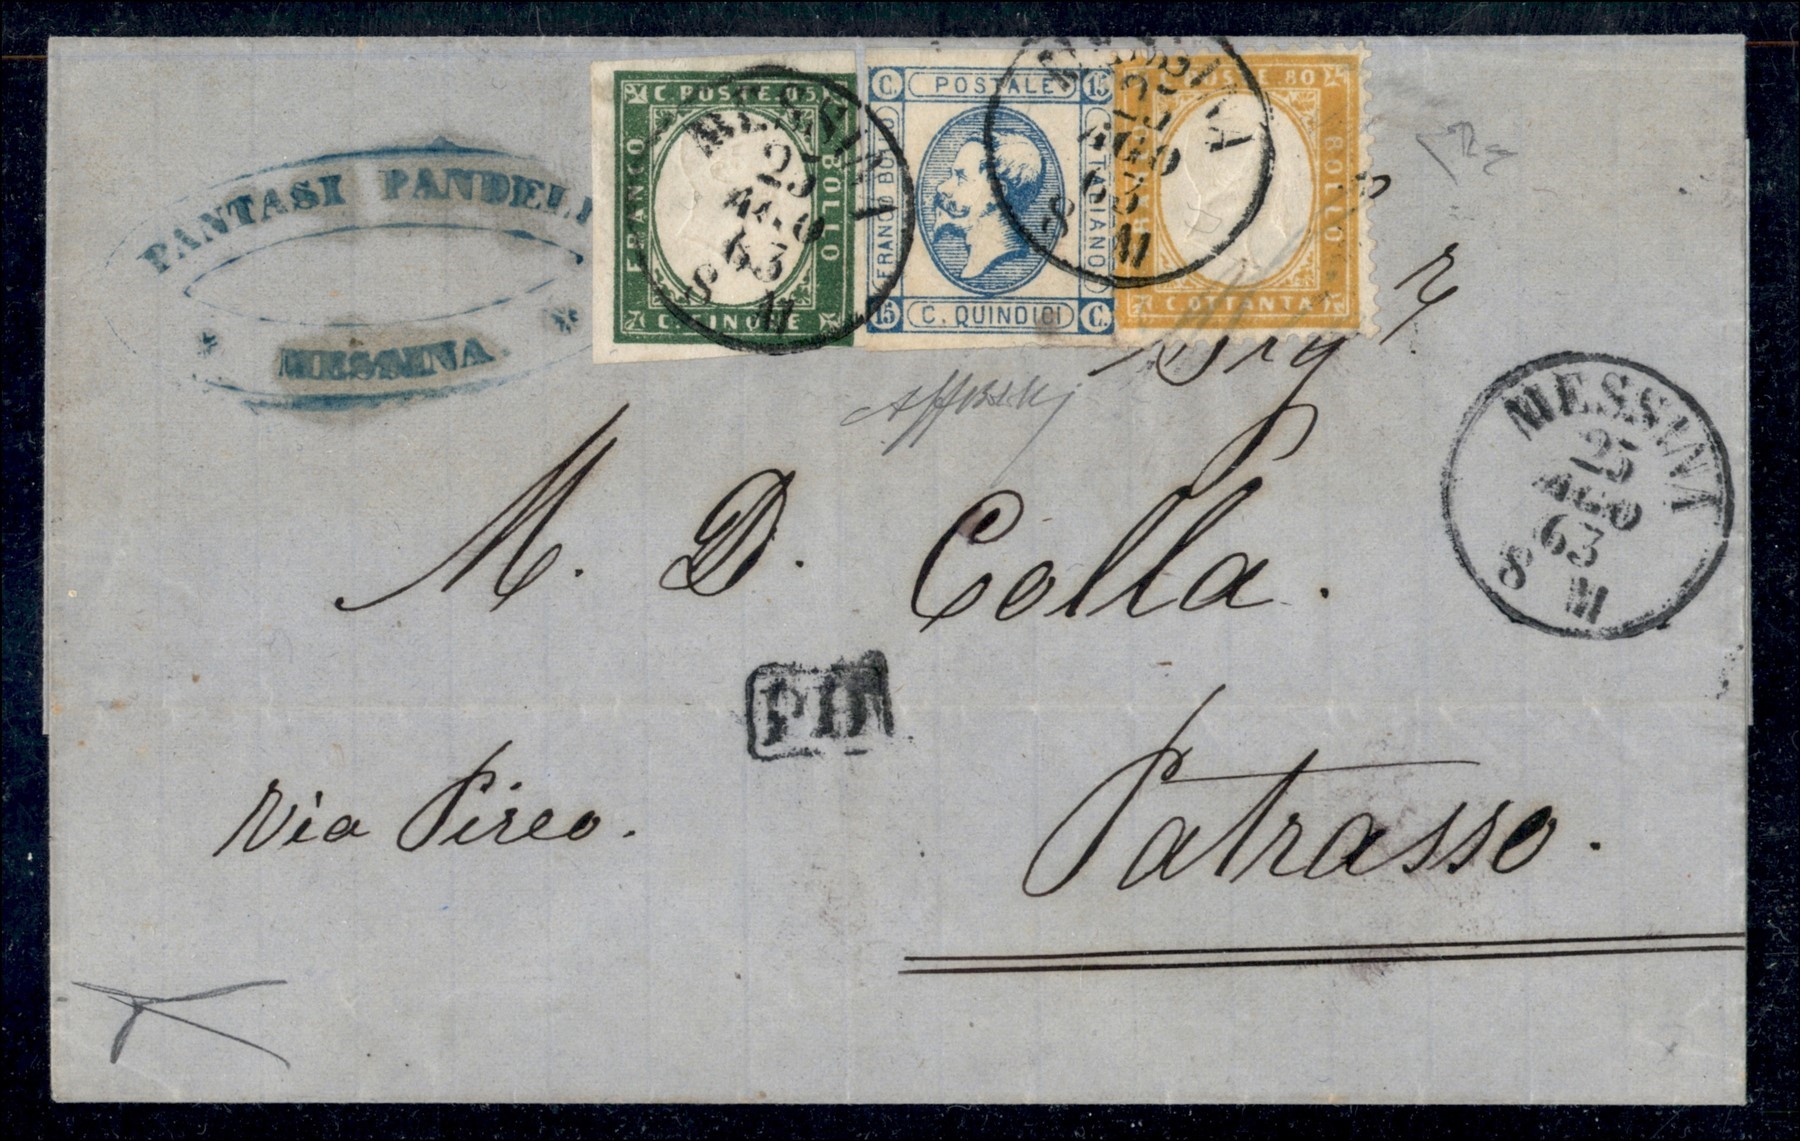 PANTASI PANDELI
MESSINA
C. POSTE 05
FRANCO
BOLLO
C. CINQUE
C. POSTALE 15
FRANCO BOLLO
ITALIANO
15 C. QUINDICI C.
C. POSTE 80
BOLLO
C. OTTANTA
MESSINA
25
AGO
63
8 M
MESSINA
25
AGO
63
8 M
MESSINA
25
AGO
63
8 M
Sigr
M. D. Colla.
PD
Via Pireo.
Patrasso.